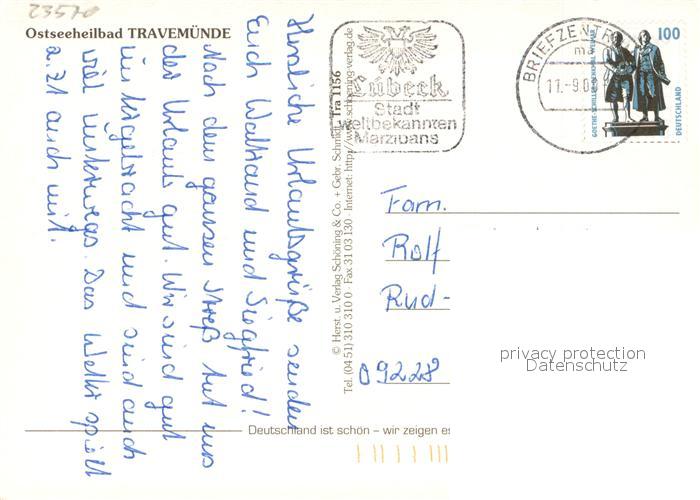 23570
Ostseeheilbad TRAVEMÜNDE
Herzliche Urlaubsgrüße senden
Euch Waltraud und Siegfried!
Nach dem ganzen Streß tut uns
der Urlaub gut. Wir sind gut
untergebracht und sind auch
viel unterwegs. Das Wetter spielt
z. Zt auch mit.
© Herst. u. Verlag Schöning & Co. + Gebr. Schmidt, Tra 1156
Tel. (04 51) 310 310 0 · Fax 31 03 130 Internet: http://www.schoening-verlag.de
Lübeck
Stadt
weltbekannten
Marzipans
BRIEFZENTR
11.-9.0
100
GOETHE-SCHILLER-DENKMAL WEIMAR
DEUTSCHLAND
Fam.
Rolf
Rud-
09228
privacy protection
Datenschutz
Deutschland ist schön – wir zeigen es